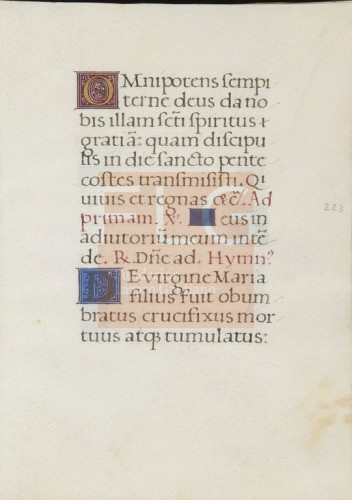 OMnipotens sempi
terne deus da no
bis illam sc̃ti spiritus
gratiã: quam discipu
lis in die sancto pente
costes transmisisti. Qi
uiuis et regnas &c̃. Ad
primam. ℣. Deus in
adiutorium meumintẽ
de. R. Dñe ad. Hymn9
DE virgine Maria
filius fuit obum
bratus crucifixus mor
tuus atq; tumulatus:
223